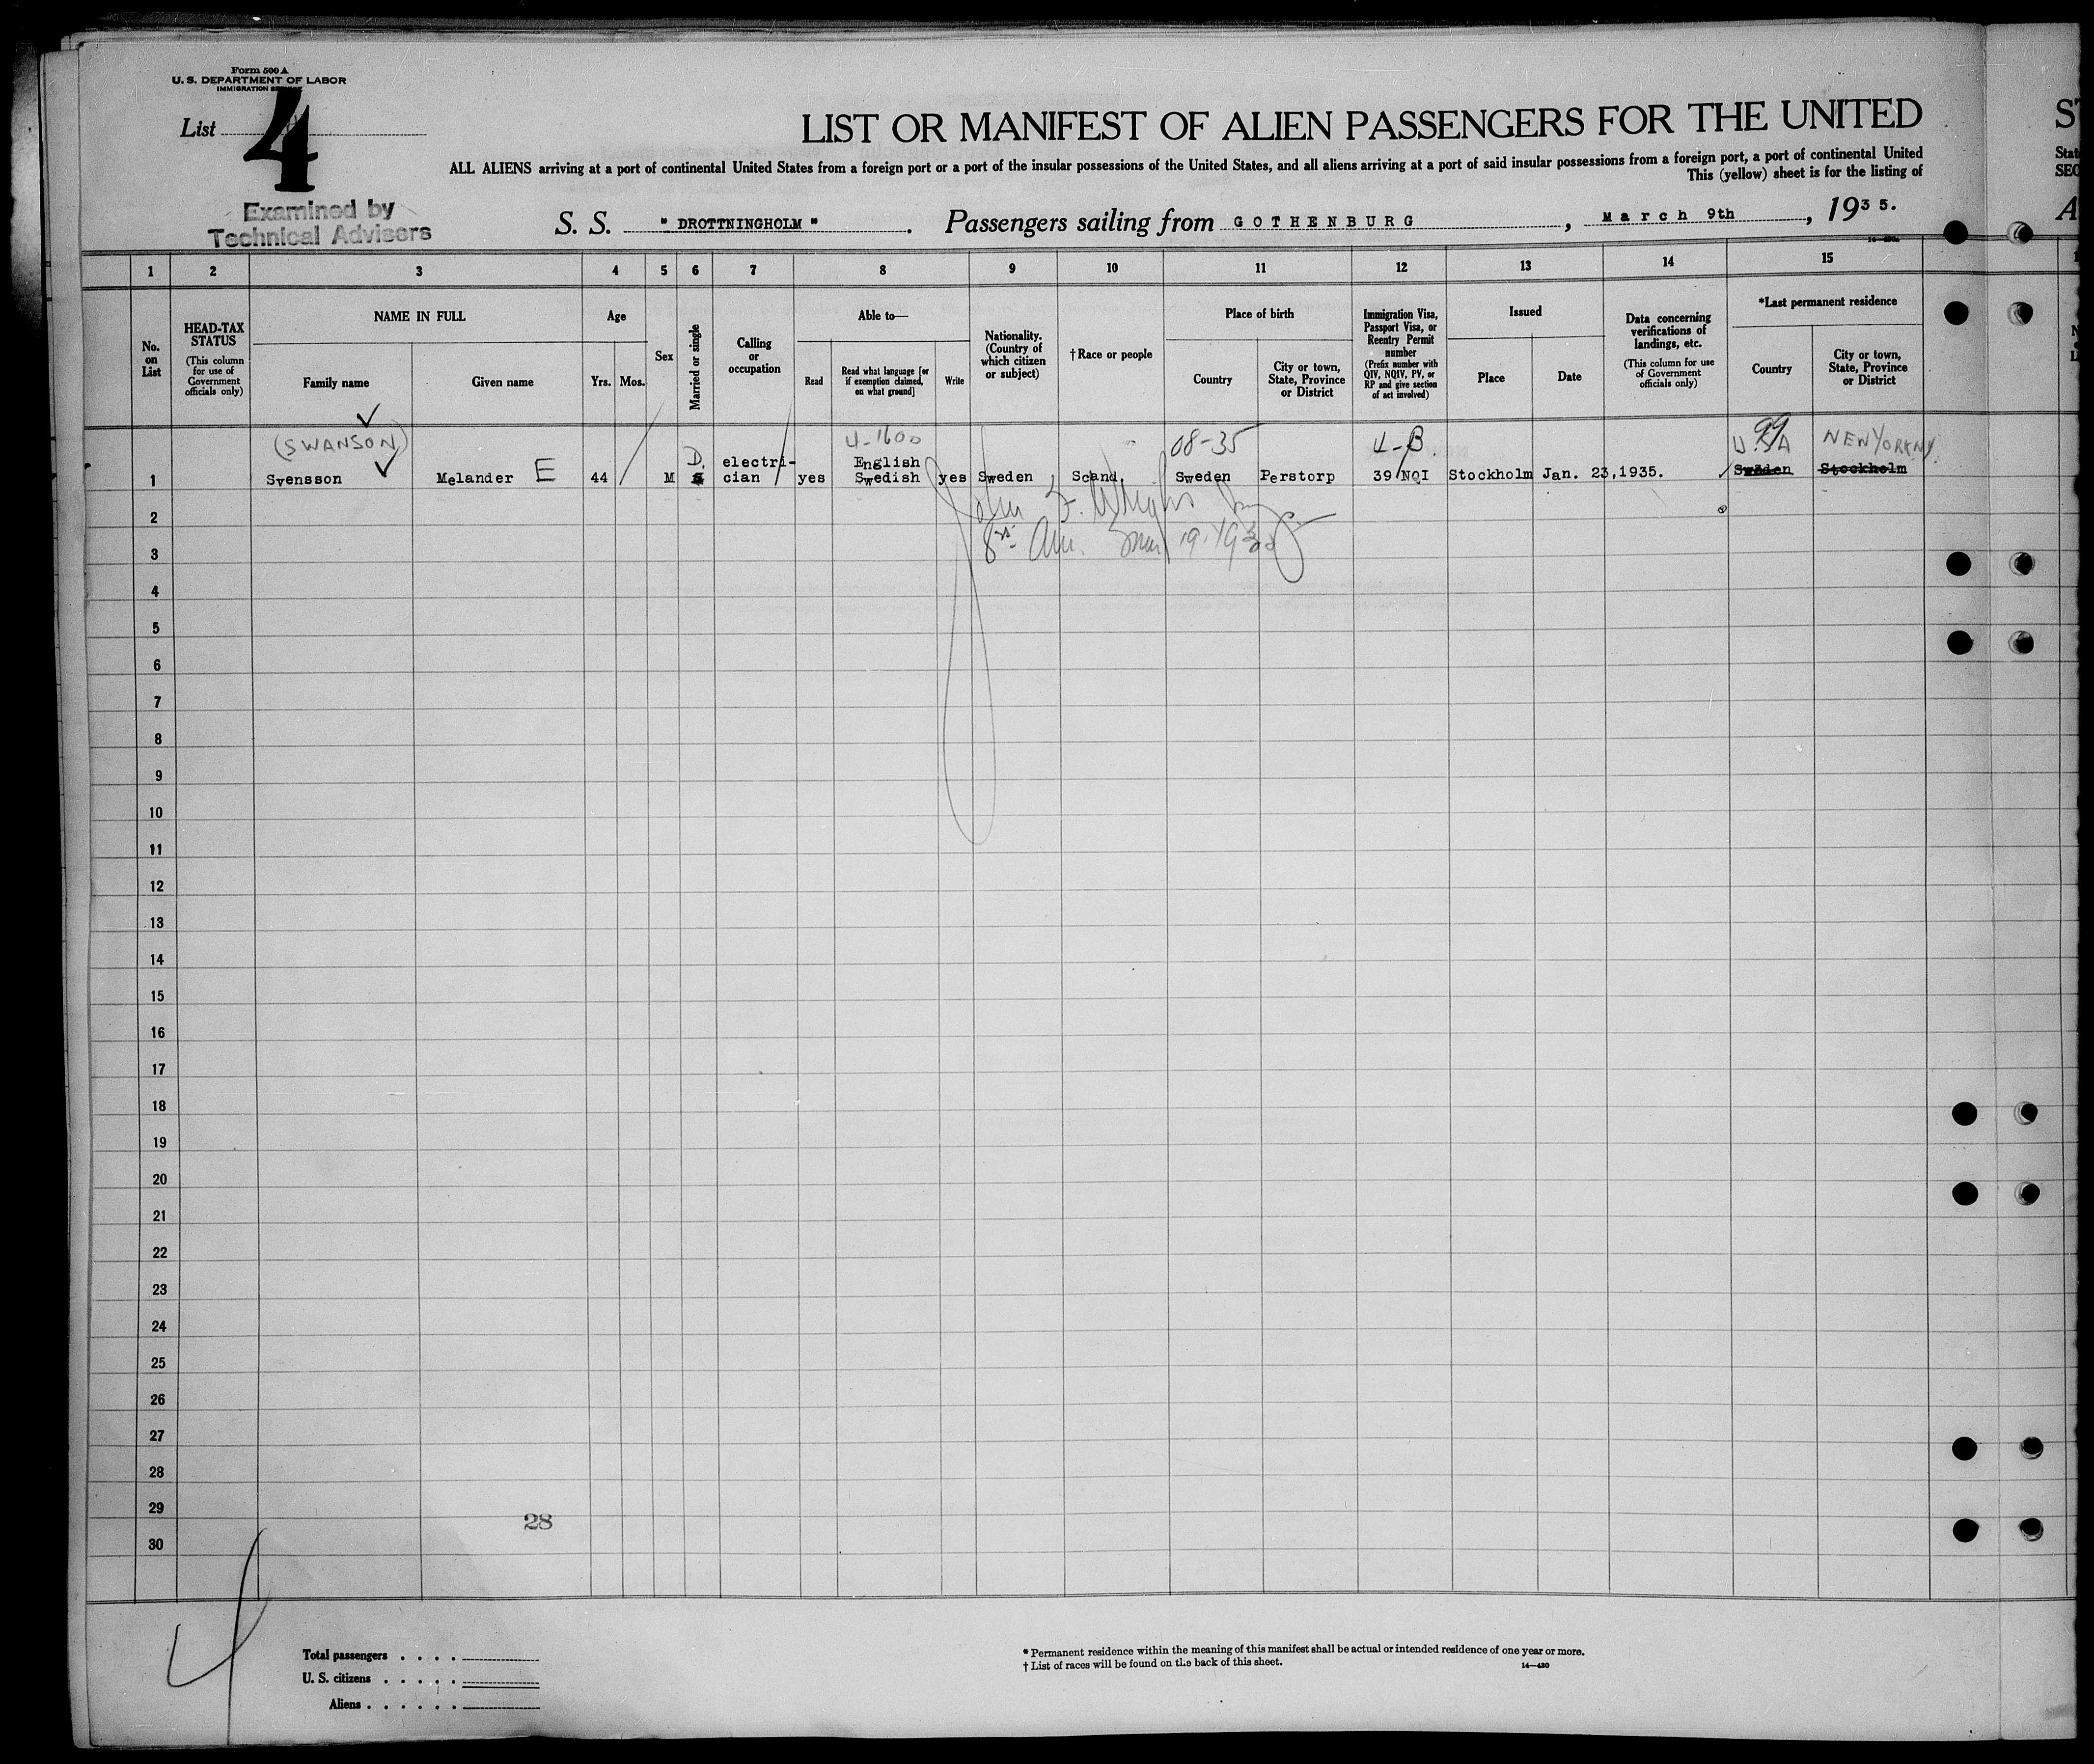 Form 500 A
U. S. DEPARTMENT OF LABOR
IMMIGRATION
List 4
Examined by
Technical Advisers
LIST OR MANIFEST OF ALIEN PASSENGERS FOR THE UNITED
ST
ALL ALIENS arriving at a port of continental United States from a foreign port or a port of the insular possessions of the United States, and all aliens arriving at a port of said insular possessions from a foreign port, a port of continental United
Stat
This (yellow) sheet is for the listing of
SEC
S. S. " DROTTNINGHOLM " . Passengers sailing from GOTHENBURG , March 9th , 1935.
A
1 2 3 4 5 6 7 8 9 10 11 12 13 14 15
No. on List
HEAD-TAX STATUS
(This column for use of Government officials only)
NAME IN FULL
Family name
Given name
Age
Yrs. Mos.
Sex
Married or single
Calling or occupation
Able to—
Read
Read what language [or if exemption claimed, on what ground]
Write
Nationality. (Country of which citizen or subject)
† Race or people
Place of birth
Country
City or town, State, Province or District
Immigration Visa, Passport Visa, or Reentry Permit number
(Prefix number with QIV, NQIV, PV, or RP and give section of act involved)
Issued
Place
Date
Data concerning verifications of landings, etc.
(This column for use of Government officials only)
*Last permanent residence
Country
City or town, State, Province or District
(SWANSON) D. 4-1600 08-35 4-B. 99 U.S.A NEW YORK NY.
electri- English
1 Svensson Melander E 44 M S cian yes Swedish yes Sweden Scand. Sweden Perstorp 39 NQI Stockholm Jan. 23,1935. Sweden Stockholm
John F.
2
3
4
5
6
7
8
9
10
11
12
13
14
15
16
17
18
19
20
21
22
23
24
25
26
27
28
29
28
30
4
Total passengers . . . .
U. S. citizens . . . . .
Aliens . . . . . .
* Permanent residence within the meaning of this manifest shall be actual or intended residence of one year or more.
† List of races will be found on the back of this sheet.
14—430